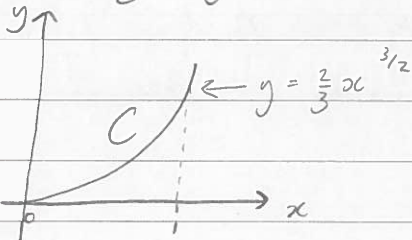 y
C
y = 2/3 x^{3/2}
0
x
1